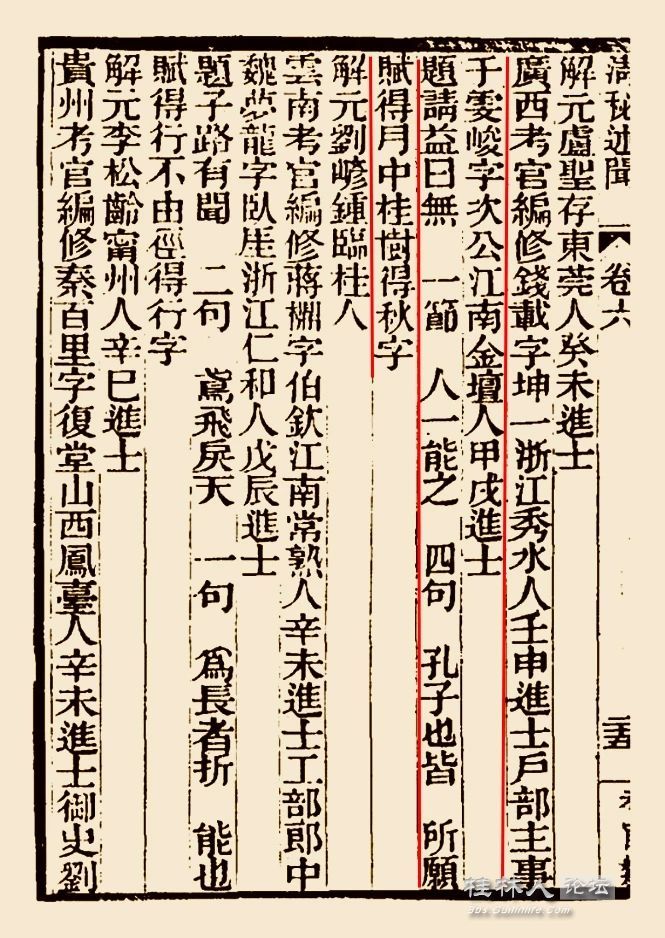 清秘述聞 卷六 二五
解元盧聖存東莞人癸未進士
廣西考官編修錢載字坤一浙江秀水人壬申進士戶部主事
于雯峻字次公江南金壇人甲戌進士
題請益曰無 一節 人一能之 四句 孔子也皆 所願
賦得月中桂樹得秋字
解元劉嵾鍾臨桂人
雲南考官編修蔣檙字伯欽江南常熟人辛未進士工部郎中
魏夢龍字臥厓浙江仁和人戊辰進士
題子路有聞 二句 鳶飛戾天 一句 爲長者折 能也
賦得行不由徑得行字
解元李松齡甯州人辛巳進士
貴州考官編修秦百里字復堂山西鳳臺人辛未進士御史劉
桂林人论坛
bbs.Guilinlife.com